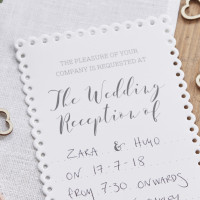 THE PLEASURE OF YOUR
COMPANY IS REQUESTED AT
The Wedding
Reception of
ZARA & HUGO
ON 17-7-18
FROM 7:30 ONWARDS